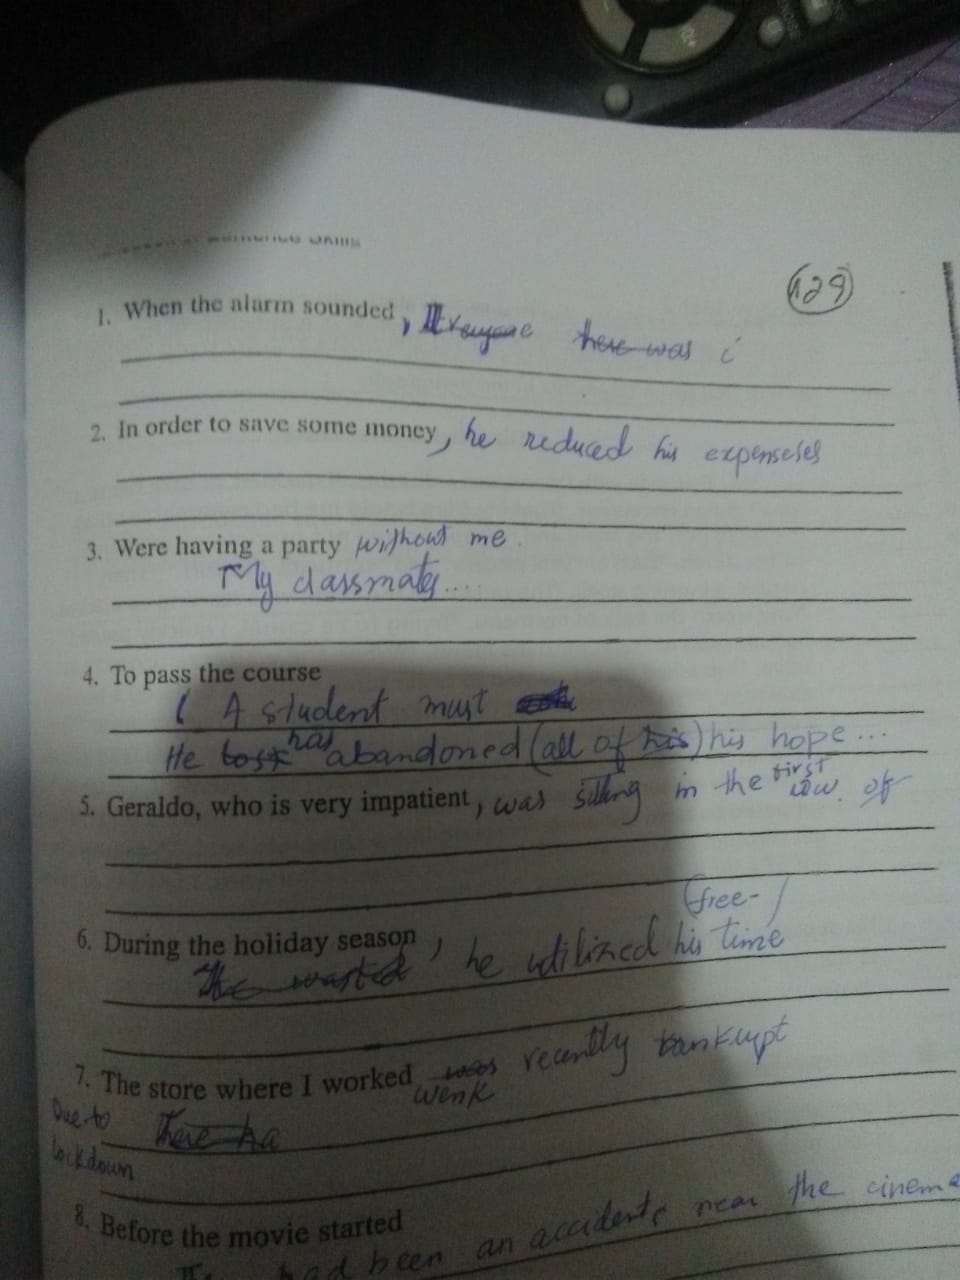 Sentence Skills
129
1. When the alarm sounded, Everyone there was i
2. In order to save some money, he reduced his expenseses
3. Were having a party without me.
My classmates....
4. To pass the course
( A student must
He lost has abandoned (all of his) his hope...
5. Geraldo, who is very impatient, was sitting in the first row. of
(free-)
6. During the holiday season, he utilized his time
The wasted
7. The store where I worked was recently bankrupt
wenk
Due to There ha
lockdown
8. Before the movie started
had been an accidents near the cinema